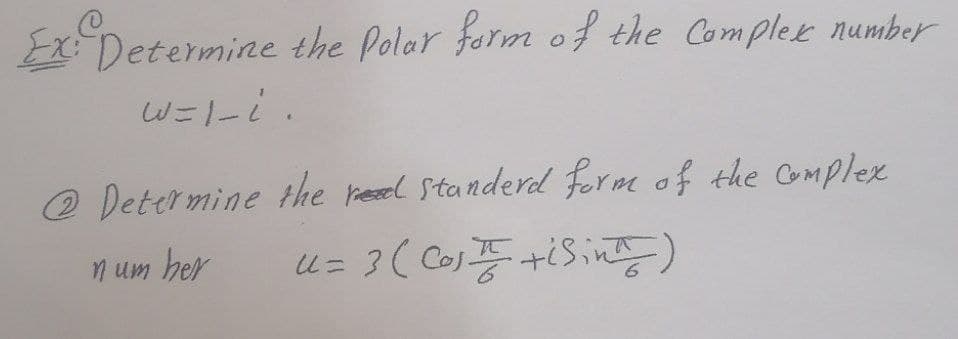 Ex: ① Determine the Polar form of the Complex number
w=1-i .
② Determine the standerd form of the Complex
number u= 3( Cos π/6 +iSin π/6 )